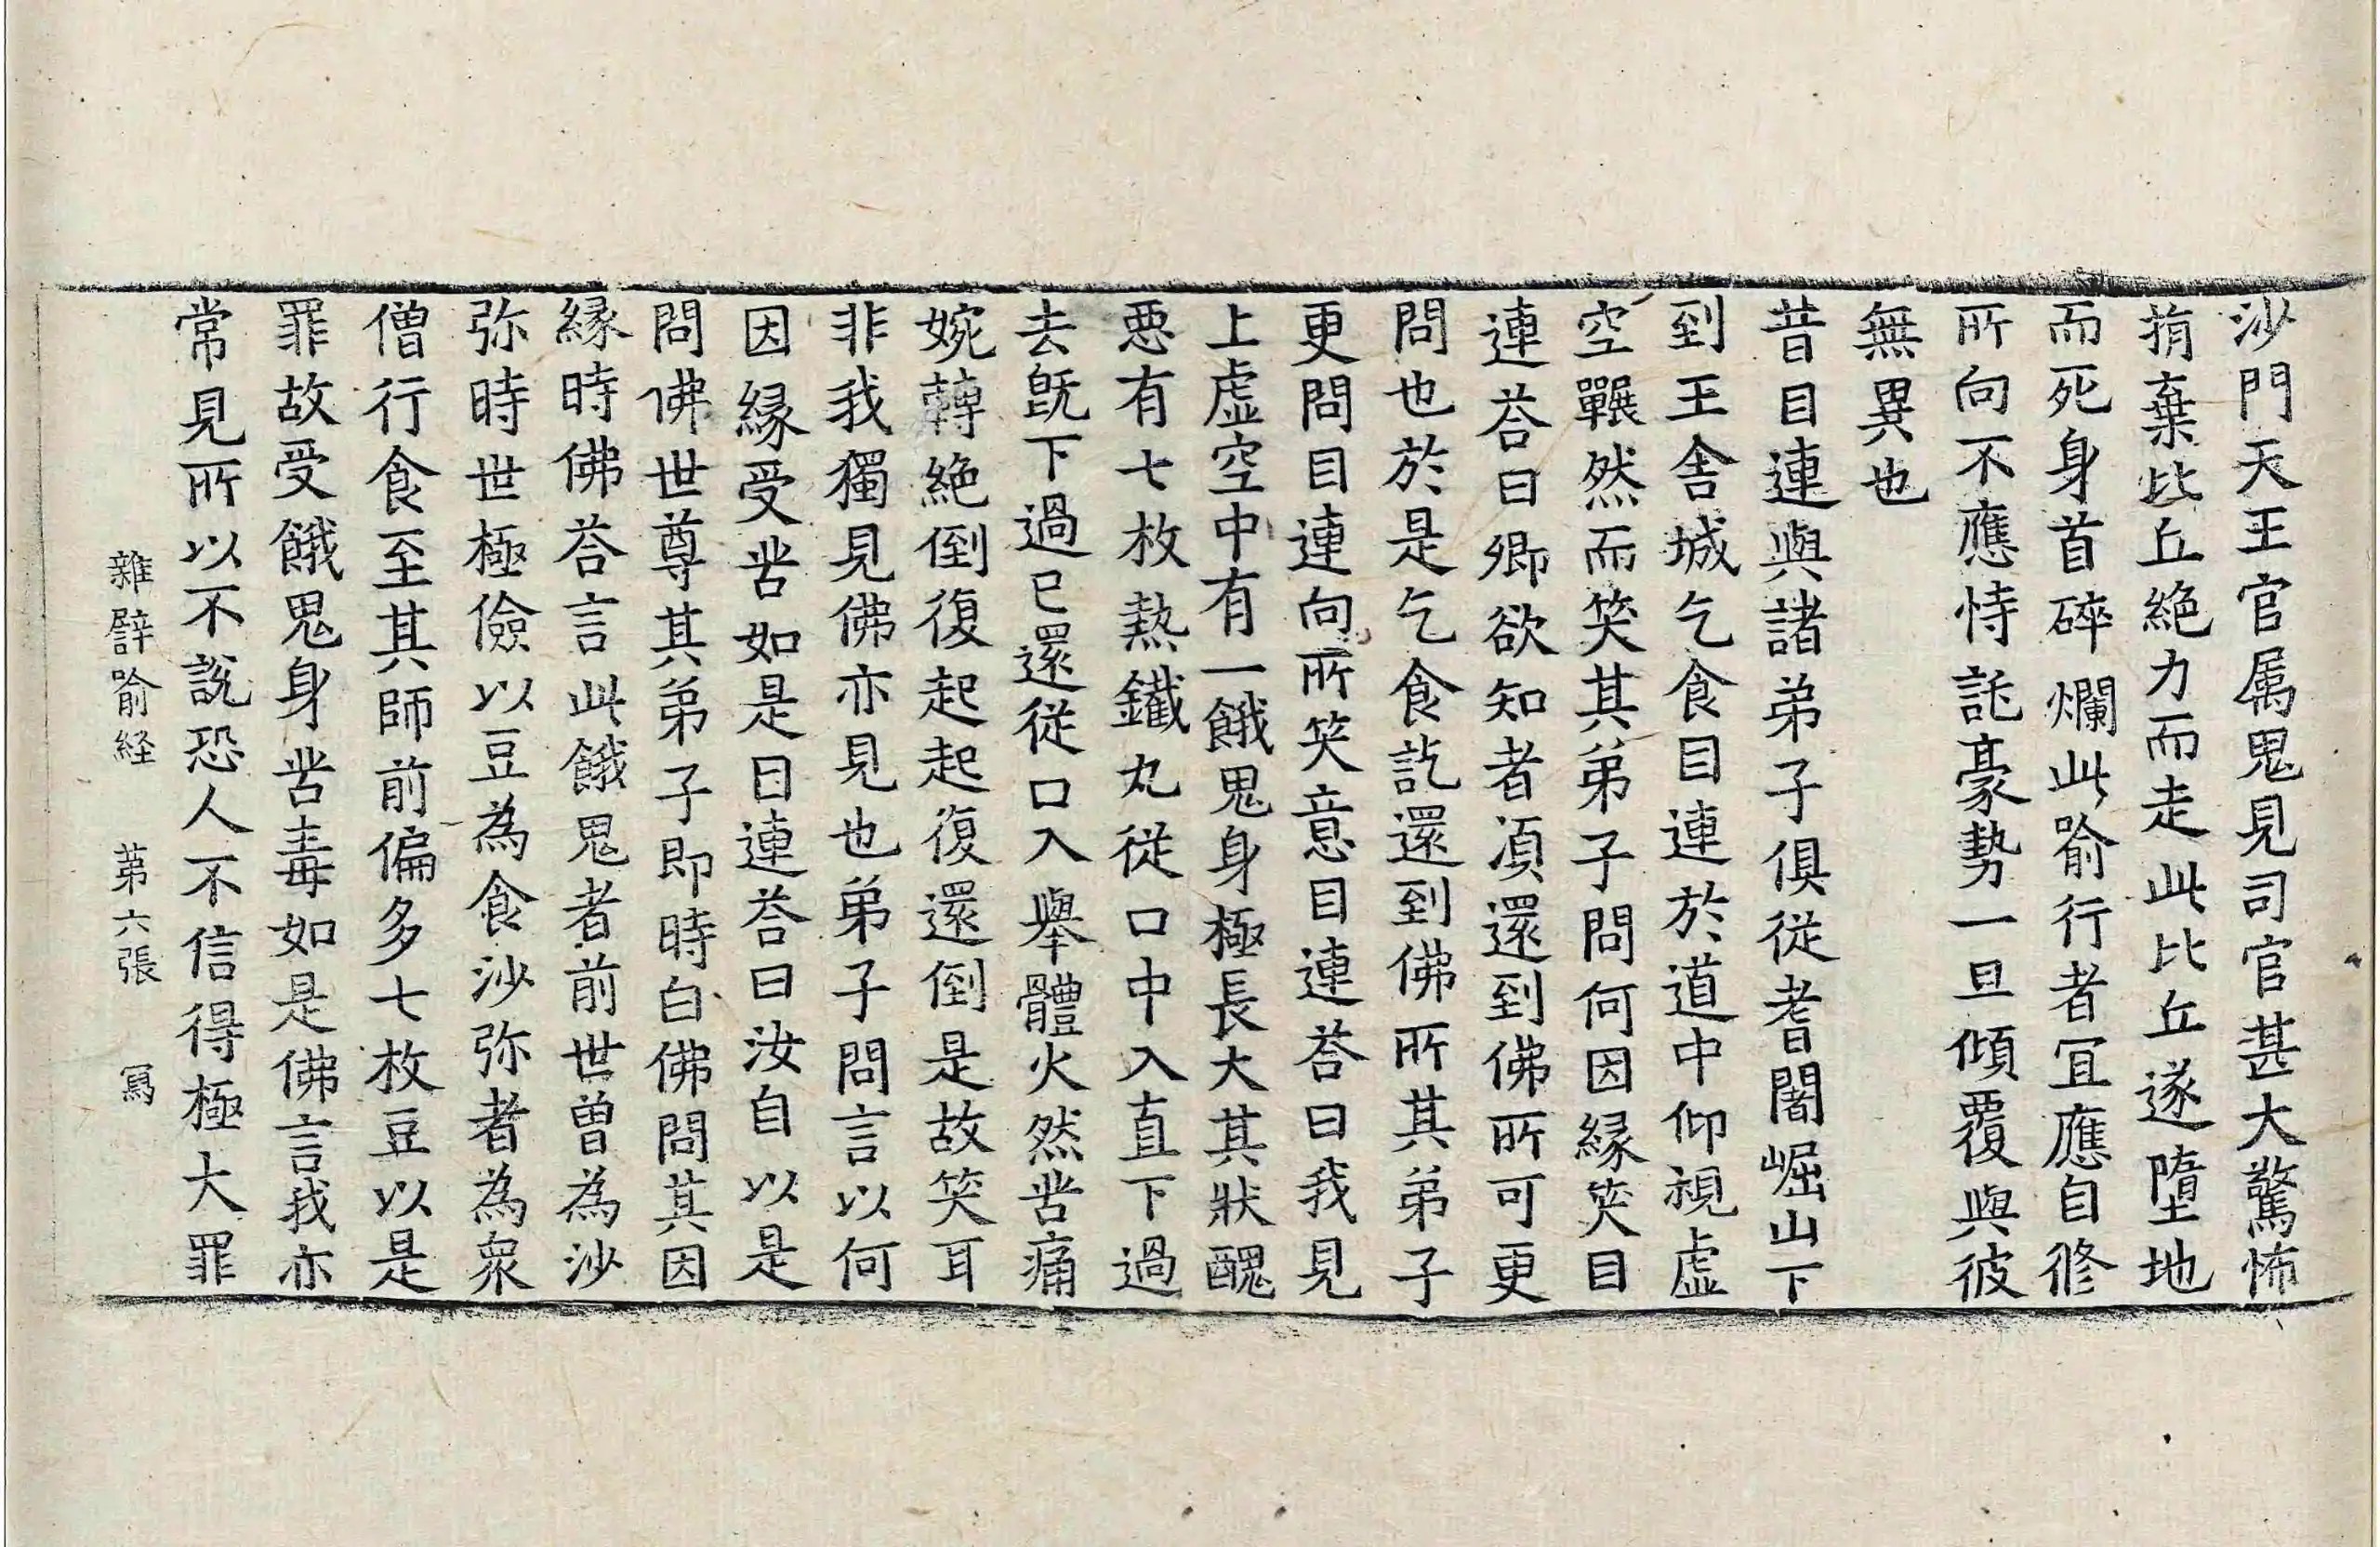 沙門天王官属鬼見司官甚大驚怖
捐棄比丘絶力而走此比丘遂墮地
而死身首碎爛此喻行者冝應自修
所向不應恃託豪勢一旦傾覆與彼
無異也
昔目連與諸弟子俱從耆闍崛山下
到王舍城乞食目連於道中仰視虛
空冁然而笑其弟子問何因縁笑目
連荅曰卿欲知者湏還到佛所可更
問也於是乞食訖還到佛所其弟子
更問目連向所笑意目連荅曰我見
上虛空中有一餓鬼身極長大其狀醜
惡有七枚熱鐵丸從口中入直下過
去旣下過已還從口入舉體火然苦痛
婉轉絶倒復起起復還倒是故笑耳
非我獨見佛亦見也弟子問言以何
因縁受苦如是目連荅曰汝自以是
問佛世尊其弟子即時白佛問其因
縁時佛荅言此餓鬼者前世曽為沙
弥時世極儉以豆為食沙弥者為衆
僧行食至其師前偏多七枚豆以是
罪故受餓鬼身苦毒如是佛言我亦
常見所以不說恐人不信得極大罪
雜譬喻経 苐六張 寫